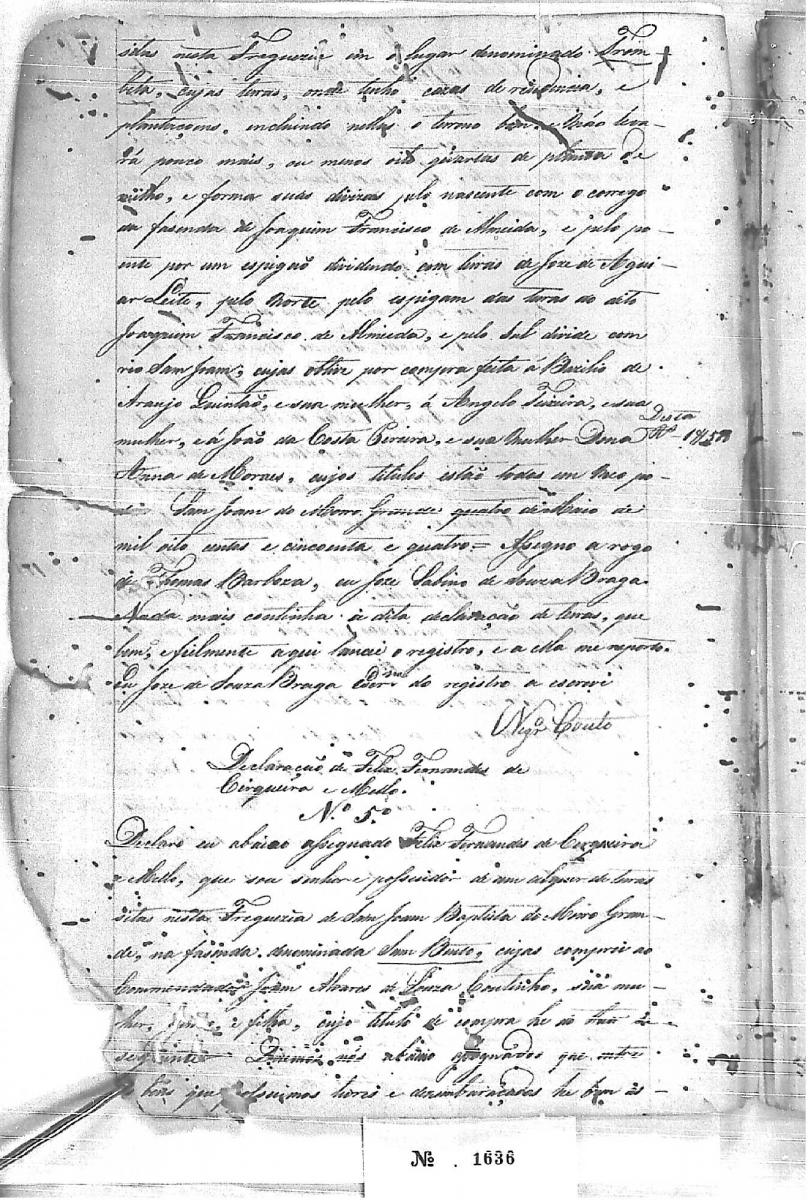 sita nesta Freguezia em o lugar denominado Trom-
beta, cujas terras, onde tenho cazas de residencia, e
plantaçoens, incluindo nellas o termo bom e máo leva-
rá pouco mais, ou menos oito quartas de planta de
milho, e forma suas divizas pelo nascente com o corrego
da fasenda de Joaquim Francisco de Almeida, e pelo po-
ente por um espigão dividindo com terras de Joze de Agui-
ar Leite, pelo Norte pelo espigam das terras do dito
Joaquim Francisco de Almeida, e pelo Sul divide com
rio Sam Joam, cujas obtive por compra feita á Bazilio de
Araujo Quintão, e sua mulher, á Angelo Teixeira, e sua
mulher, e á João da Costa Pereira, e sua Mulher Dona
Desta
Anna de Moraes, cujos titulos estão todos em meo po-
Sam Joam do Morro Grande quatro de Maio de
mil oito centos e cincoenta e quatro = Assegno a rogo
de Thomas Barboza, eu Joze Sabino de Souza Braga
Nada mais continha á dita declaração de terras, que
bem, e fielmente aqui lancei o registro, e a ella me reporto.
Eu Joze de Souza Braga do registro a escrevi
Vigr.º Couto
Declaração de Felix Fernandes de
Cirqueira e Mello.
N.º 5º
Declaro eu abaixo assegnado Felix Fernandes de Cerqueira
e Mello, que sou senhor e possuidor de um alquer de terras
sitas nesta Freguezia de Sam Joam Baptista do Morro Gran-
de, na fasenda denominada Sam Bento, cujas comprei ao
Commendador Joam Alvares de Souza Coutinho, sua mu-
lher, e filho, cujo titulo de compra he do theor
seguinte Dizemos nós abaixo assegnados que entre
bens que possuimos livres e desembaraçados he bem as-
Nº. 1636